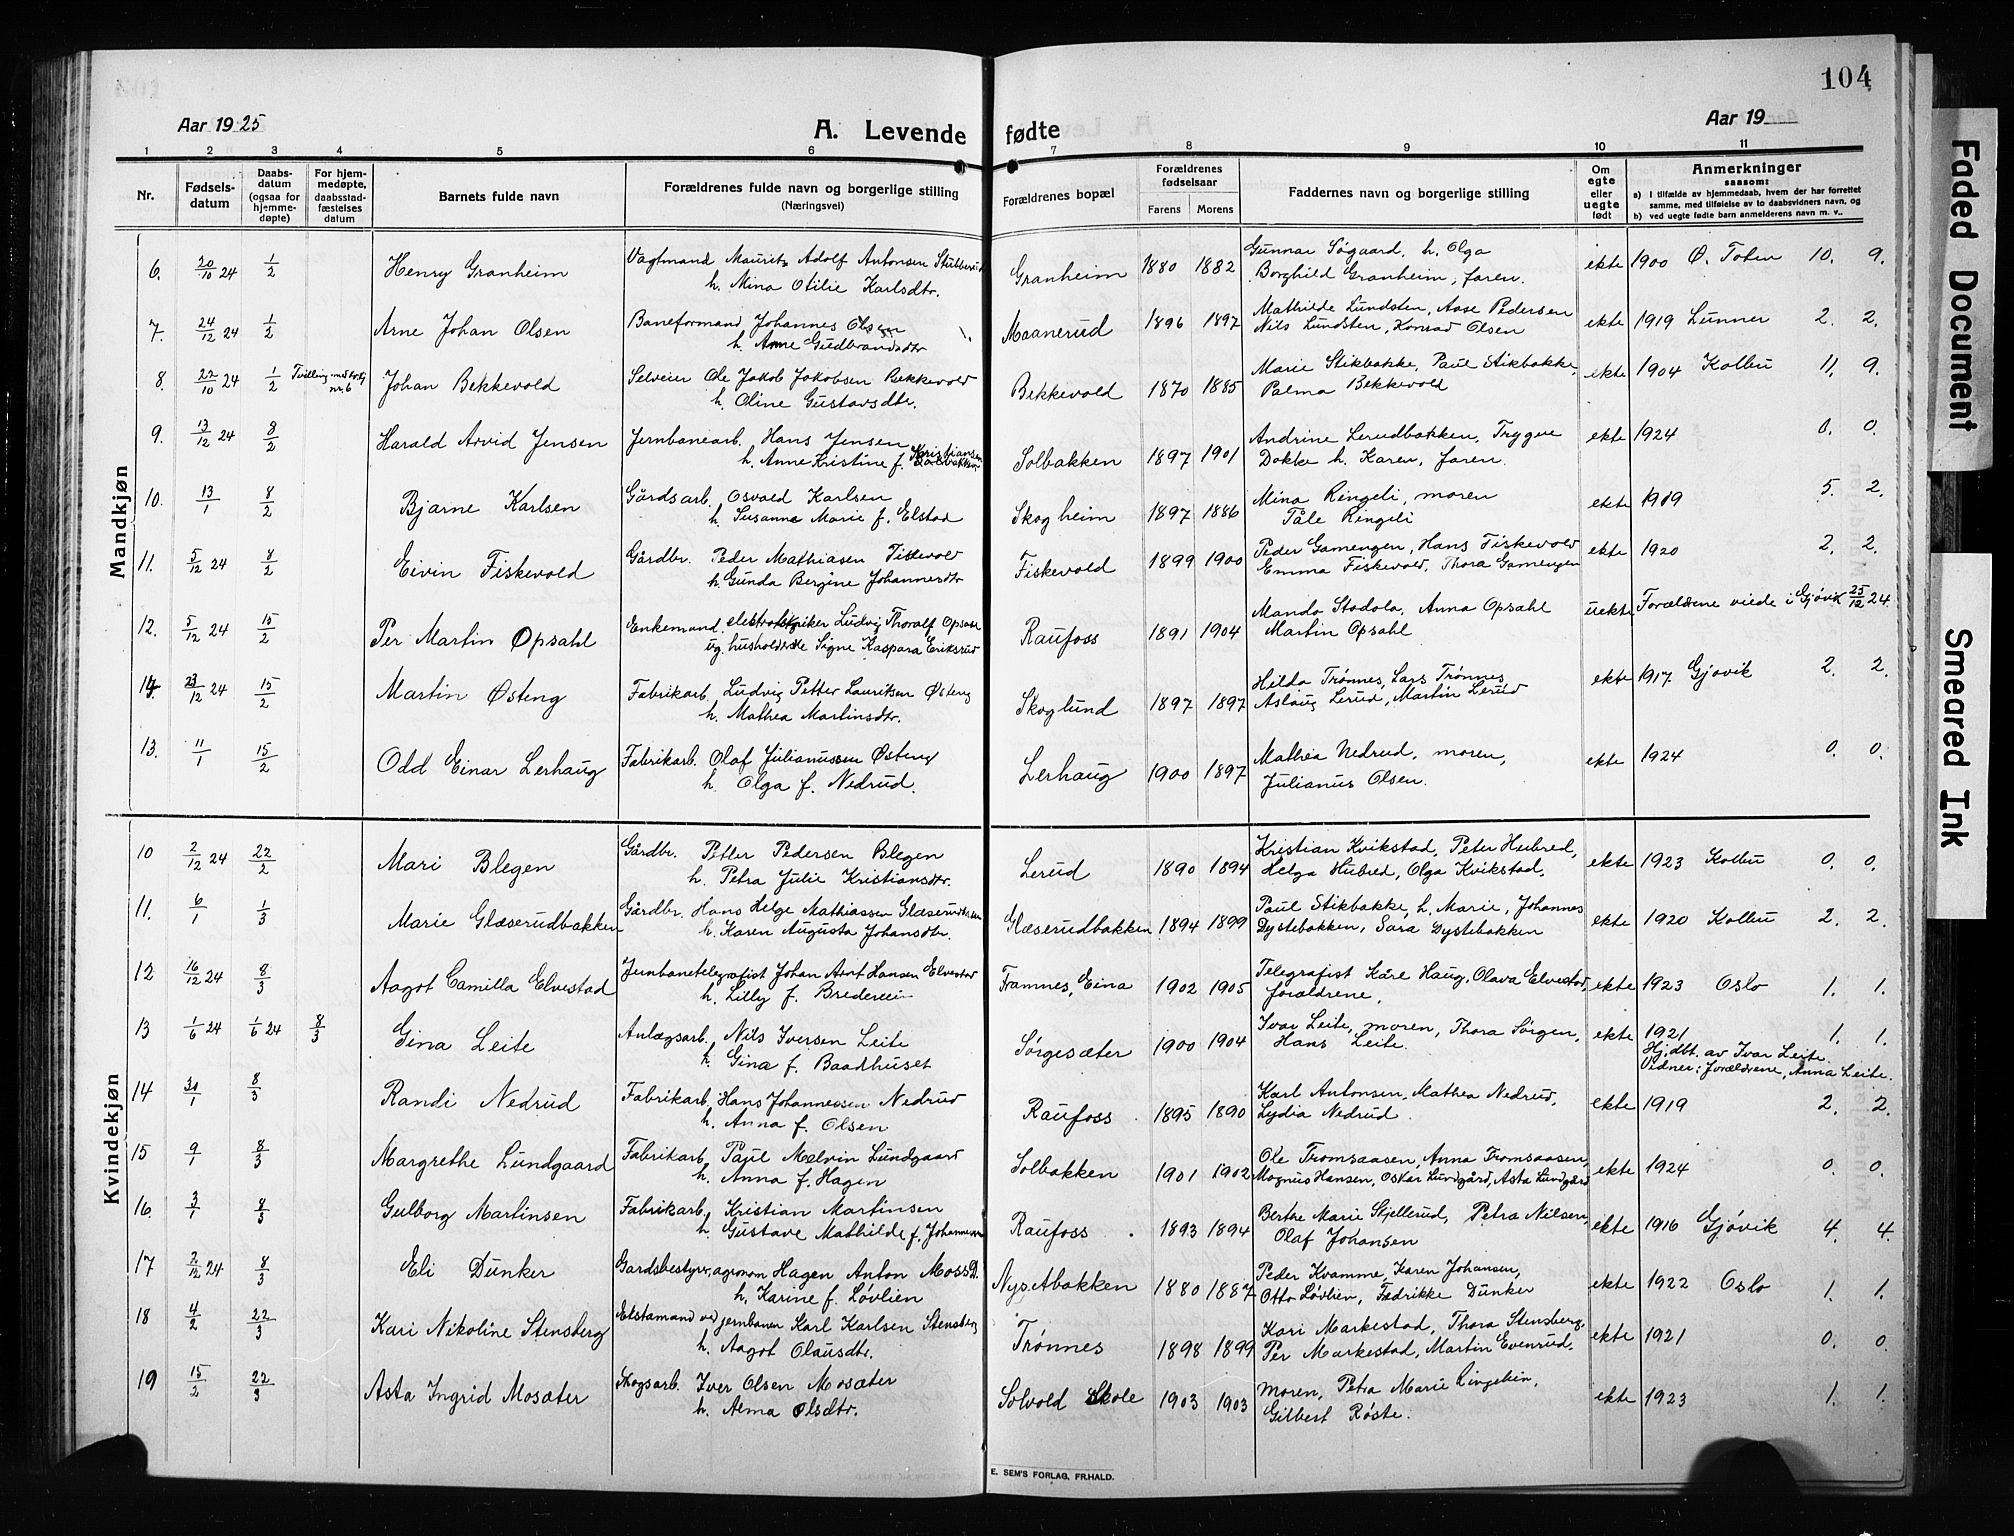 104
Aar 1925
A. Levende fødte
Aar 19
1 2 3 4 5 6 7 8 9 10 11
Nr.
Fødsels-
datum
Daabs-
datum
(ogsaa for
hjemme-
døpte)
For hjem-
medøpte,
daabsstad-
fæstelses
datum
Barnets fulde navn
Forældrenes fulde navn og borgerlige stilling
(Næringsvei)
Forældrenes bopæl
Forældrenes
fødselsaar
Farens Morens
Faddernes navn og borgerlige stilling
Om
egte
eller
uegte
født
Anmerkninger
saasom:
a) I tilfælde av hjemmedaab, hvem der har forrettet
samme, med tilføielse av to daabsvidners navn, og
b) ved uegte fødte barn anmelderens navn m. v..
Mandkjøn
6. 20/10 24 1/2 Henry Granheim Vagtmand Mauritz Adolf Antonsen Stubberud
h. Mina Otilie Karlsdtr. Granheim 1880 1882 Gunnar Søgaard, h. Olga
Borghild Granheim, faren. ekte 1900 Ø. Toten 10. 9.
7. 24/12 24 1/2 Arne Johan Olsen Baneformand Johannes Olsen
h. Anne Gudbrandsdtr Maanerud 1896 1897 Mathilde Lundsten, Aase Pedersen
Nils Lundsten, Konrad Olsen ekte 1919 Lunner 2. 2.
8. 22/10 24 1/2 Tvilling med
nr. 6 Johan Bekkevold Selveier Ole Jakob Jakobsen Bekkevold
h. Oline Gustavsdtr. Bekkevold 1870 1885 Marie Stikbakke, Paul Stikbakke,
Palma Bekkevold ekte 1904 Kolbu 11. 9.
9. 13/12 24 8/2 Harald Arvid Jensen Jernbanearb. Hans Jensen
h. Anne Kristine f. Kristiansen Solbakken 1897 1901 Andrine Lerudbakken, Trygve
Dokke h. Karen, faren. ekte 1924 0. 0.
10. 13/1 8/2 Bjarne Karlsen Gårdsarb. Osvald Karlsen
h. Susanne Marie f. Elstad Skogheim 1897 1886 Mina Ringeli, moren
Tåle Ringeli ekte 1919 5. 2.
11. 5/12 24 8/2 Eivin Fiskevold Gårdbr. Peder Mathiasen Fiskevold
h. Gunda Bergine Johannesdtr Fiskevold 1899 1900 Peder Gamengen, Hans Fiskevold
Emma Fiskevold, Thora Gamengen ekte 1920 2. 2.
12. 5/12 24 15/2 Per Martin Opsahl Enkemand, elektrotekniker Ludvig Thoralf Opsahl
ug. husholderske Signe Kaspara Eriksrud Raufoss 1891 1904 Manda Stadola, Anna Opsahl
Martin Opsahl uekte Forældrene viede i Gjøvik 25/12 24.
14. 23/12 24 15/2 Martin Østeng Fabrikarb. Ludvig Petter Lauritsen Østeng
h. Mathea Martinsdtr. Skoglund 1897 1897 Hilda Trønnes, Lars Trønnes
Aslaug Lerud, Martin Lerud ekte 1917 Gjøvik 2. 2.
13. 11/1 15/2 Odd Einar Lerhaug Fabrikarb. Olaf Julianussen Østeng
h. Olga f. Nedrud. Lerhaug 1900 1897 Mathea Nedrud, moren,
Julianus Olsen. ekte 1924 0. 0.
Kvindekjøn
10 2/12 24 22/2 Mari Blegen Gårdbr. Petter Pedersen Blegen
h. Petra Julie Kristiansdtr. Lerud 1890 1894 Kristian Kvikstad, Peter Hubred,
Helga Hubred, Olga Kvikstad. ekte 1923 Kolbu 0. 0.
11. 6/1 1/3 Marie Glæserudbakken Gårdbr. Hans Helge Mathiassen Glæserudbakken
h. Karen Augusta Johansdtr. Glæserudbakken 1894 1899 Paul Stikbakke, h. Marie, Johannes
Dystebakken, Sara Dystebakken ekte 1920 Kolbu 2. 2.
12 16/12 24 8/3 Aagot Camilla Elvestad Jernbanetelegrafist Johan Arnt Hansen Elvestad
h. Lilly f. Bredevein Framnes, Eina 1902 1905 Telegrafist Kåre Haug, Olava Elvestad,
forældrene. ekte 1923 Oslo 1. 1.
13 1/6 24 1/6 24 8/3 Gina Leite Anlægsarb. Nils Iversen Leite
h. Gina f. Baadhuset Sørgesæter 1900 1904 Ivar Leite, moren, Thora Sørgen,
Hans Leite. ekte 1921 1. 1.
Hj.dbt. av Ivar Leite.
Vidner: forældrene, Anna Leite.
14 31/1 8/3 Randi Nedrud Fabrikarb. Hans Johannessen Nedrud
h. Anna f. Olsen Raufoss 1895 1890 Karl Antonsen, Mathea Nedrud,
Lydia Nedrud. ekte 1919 2. 2.
15 9/1 8/3 Margrethe Lundgaard Fabrikarb. Paul Melvin Lundgaard
h. Anna f. Hagen Solbakken 1901 1902 Ole Tromsaasen, Anna Tromsaasen,
Magnus Hansen, Oskar Lundgård, Asta Lundgård ekte 1924 0. 0.
16. 3/1 8/3 Gulborg Martinsen Fabrikarb. Kristian Martinsen
h. Gustave Mathilde f. Johannessen Raufoss 1893 1894 Berthe Marie Skjellerud, Petra Nilsen,
Olaf Johansen ekte 1916 Gjøvik 4. 4.
17 2/12 24 8/3 Eli Dunker Gardsbestyrer, agronom Hagen Anton Moss D.
h. Karine f. Løvlien Nysetbakken 1880 1887 Peder Kvamme, Karen Johansen,
Otto Løvlien, Fredrikke Dunker ekte 1922 Oslo 1. 1.
18 4/2 22/3 Kari Nikoline Stensberg Etstamand ved jernbanen Karl Karlsen Stensberg
h. Aagot Olausdtr. Trønnes 1898 1899 Kari Markestad, Thora Stensberg,
Per Markestad, Martin Evenrud. ekte 1921 0. 0.
19 15/2 22/3 Asta Ingrid Mosæter Skogsarb. Iver Olsen Mosæter
h. Alma Olsdtr. Solvold Skole 1903 1903 moren, Petra Marie Ringelien,
Gilbert Røste. ekte 1923 1. 1.
E. SEM'S FORLAG, FR.HALD.
Faded Document
Smeared Ink